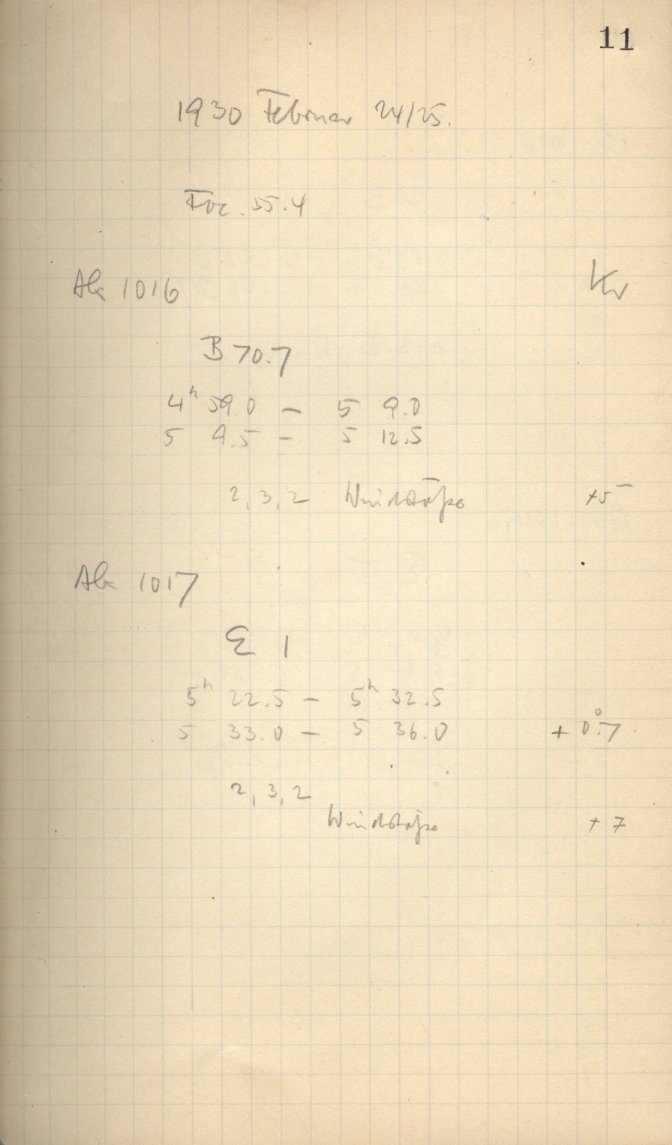 11
1930 Februar 24/25.
Foc. 35.4
1016 Kr
B 70.7
4h 59.0 – 5 9.0
5 9.5 – 5 12.5
2, 3, 2 Windstöße +5
1017
Σ 1
5h 22.5 – 5h 32.5
5 33.0 – 5 36.0 + 0°.7
2, 3, 2
Windstöße +7